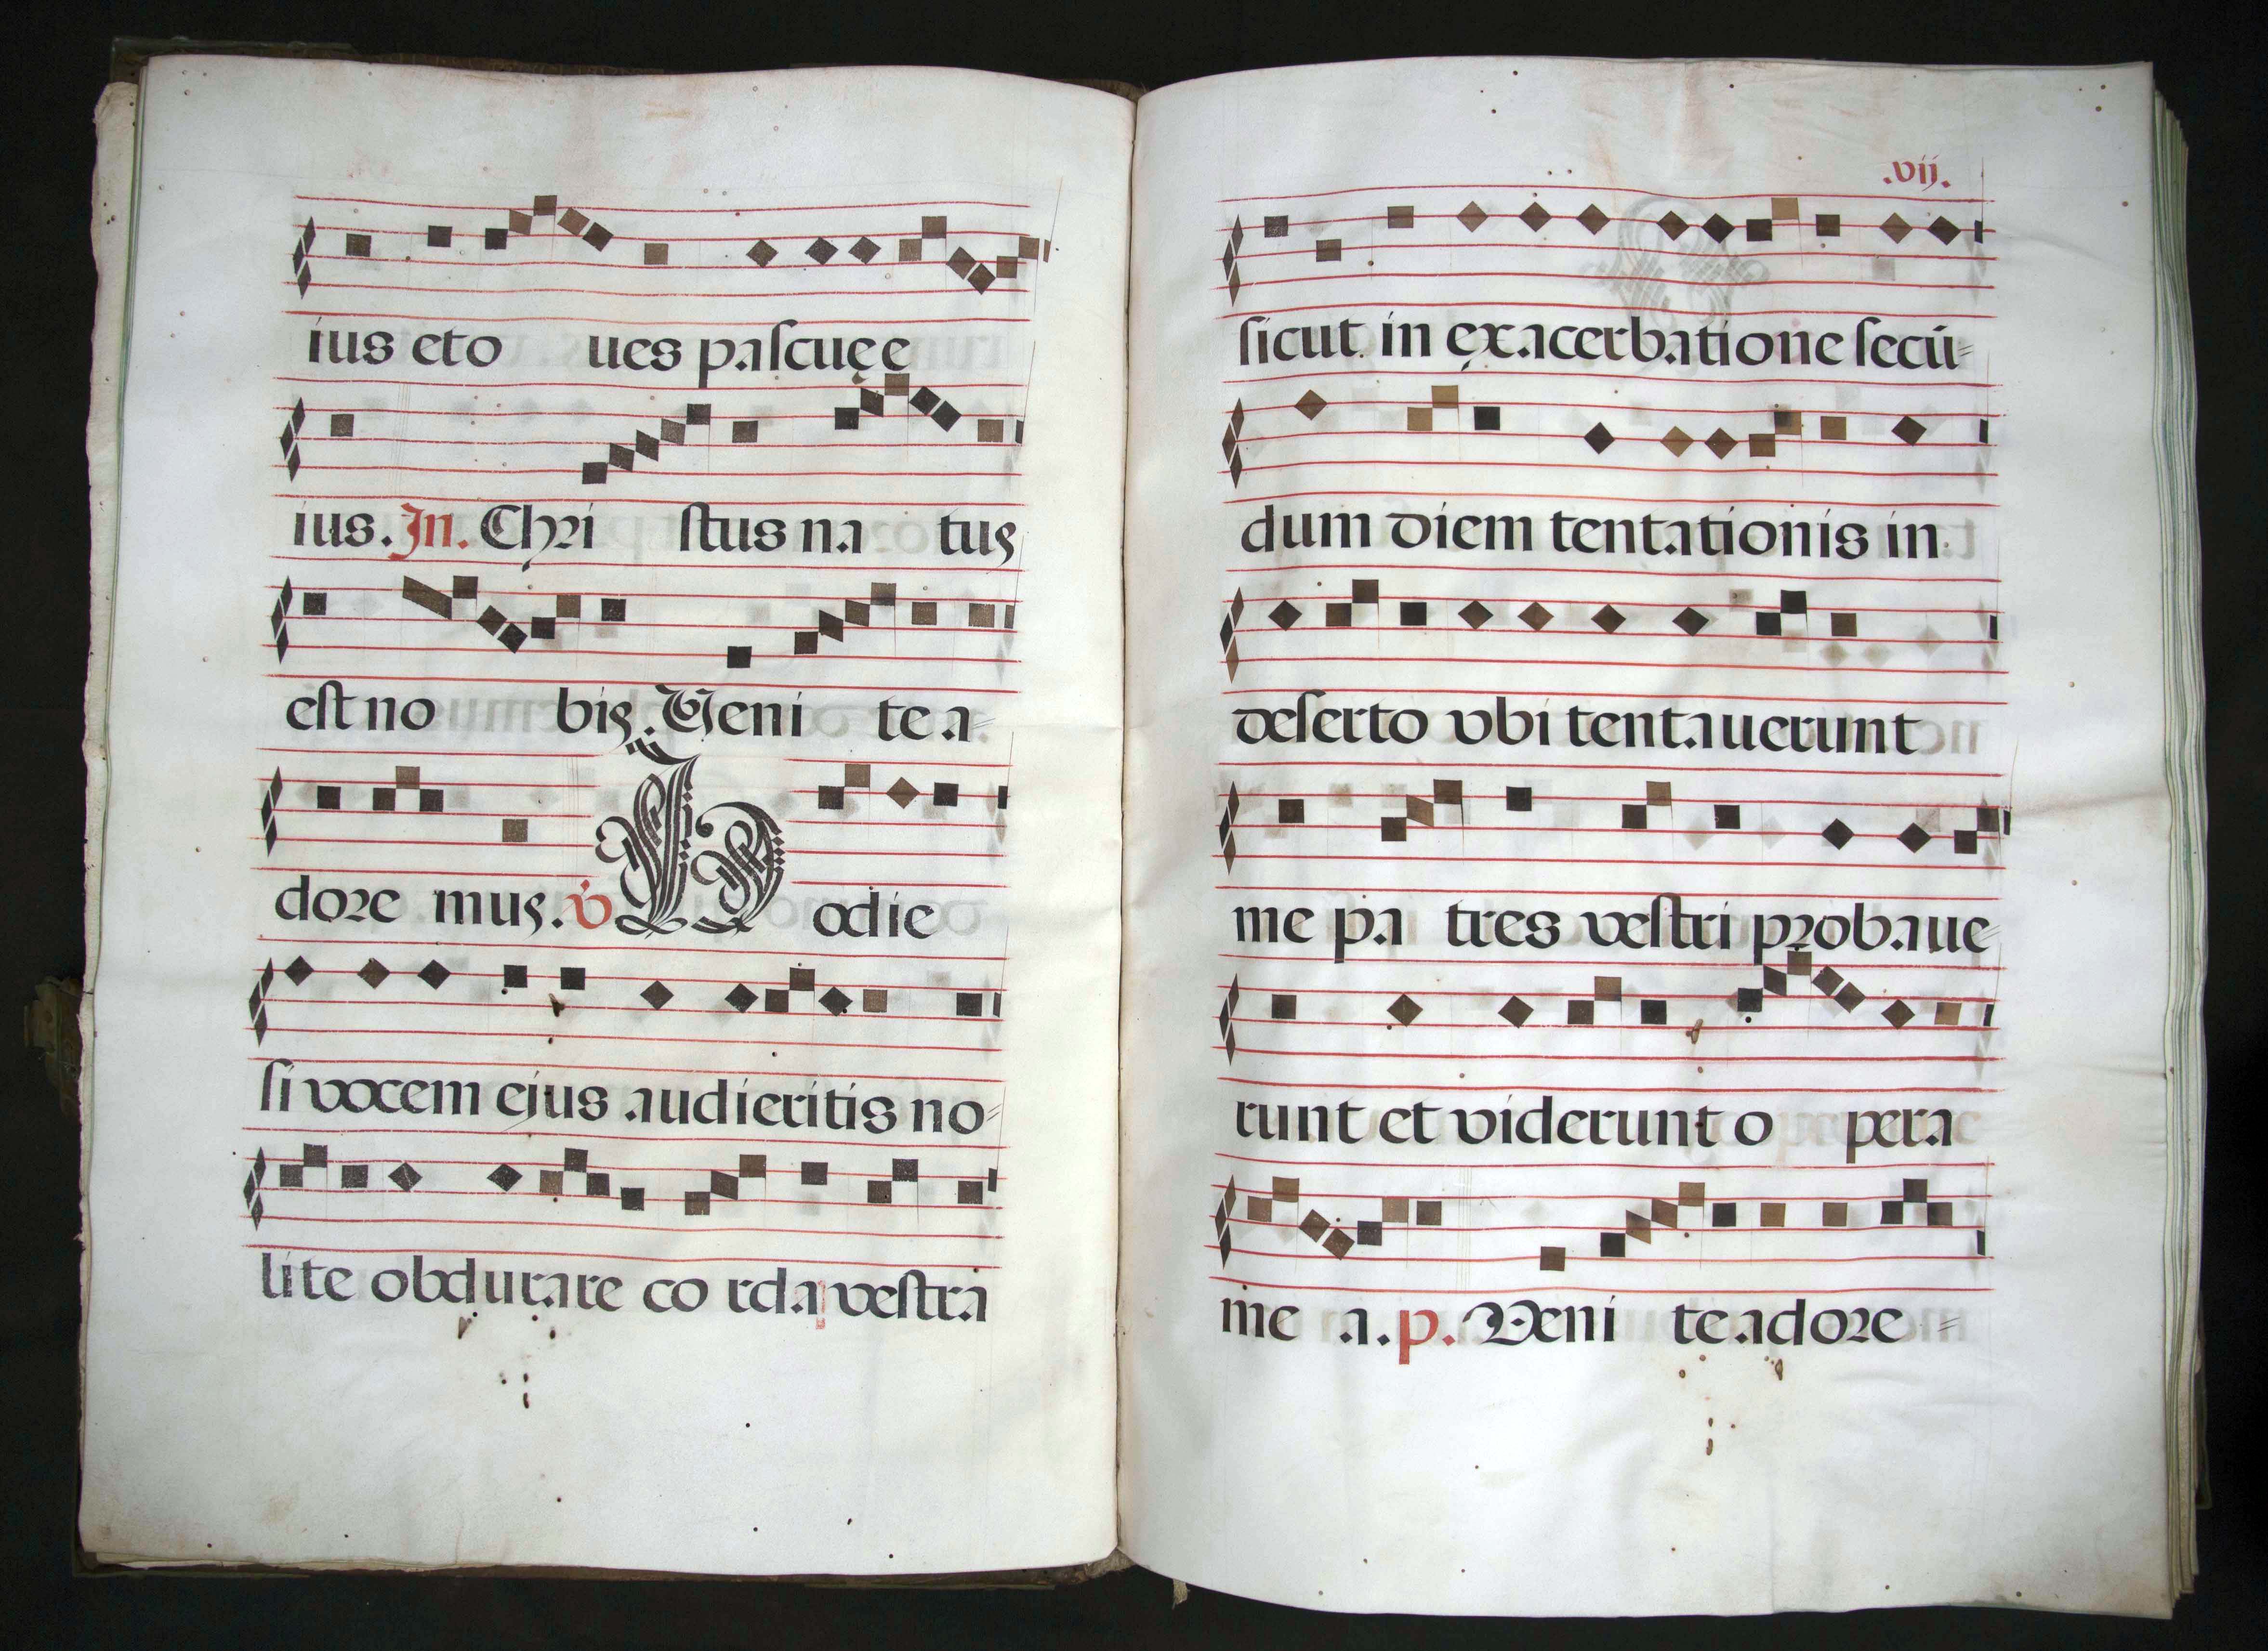 ius eto ues pascuę e
ius. In. Christus na tus
est no bis. Veni te a=
dore mus. v Hodie
si vocem ejus audieritis no=
lite obdurare co rda vestra
.vij.
sicut in exacerbatione secū=
dum diem tentationis in
deserto vbi tentauerunt
me pa tres vestri probaue=
runt et viderunt o pera
me a. p. Veni te adore =